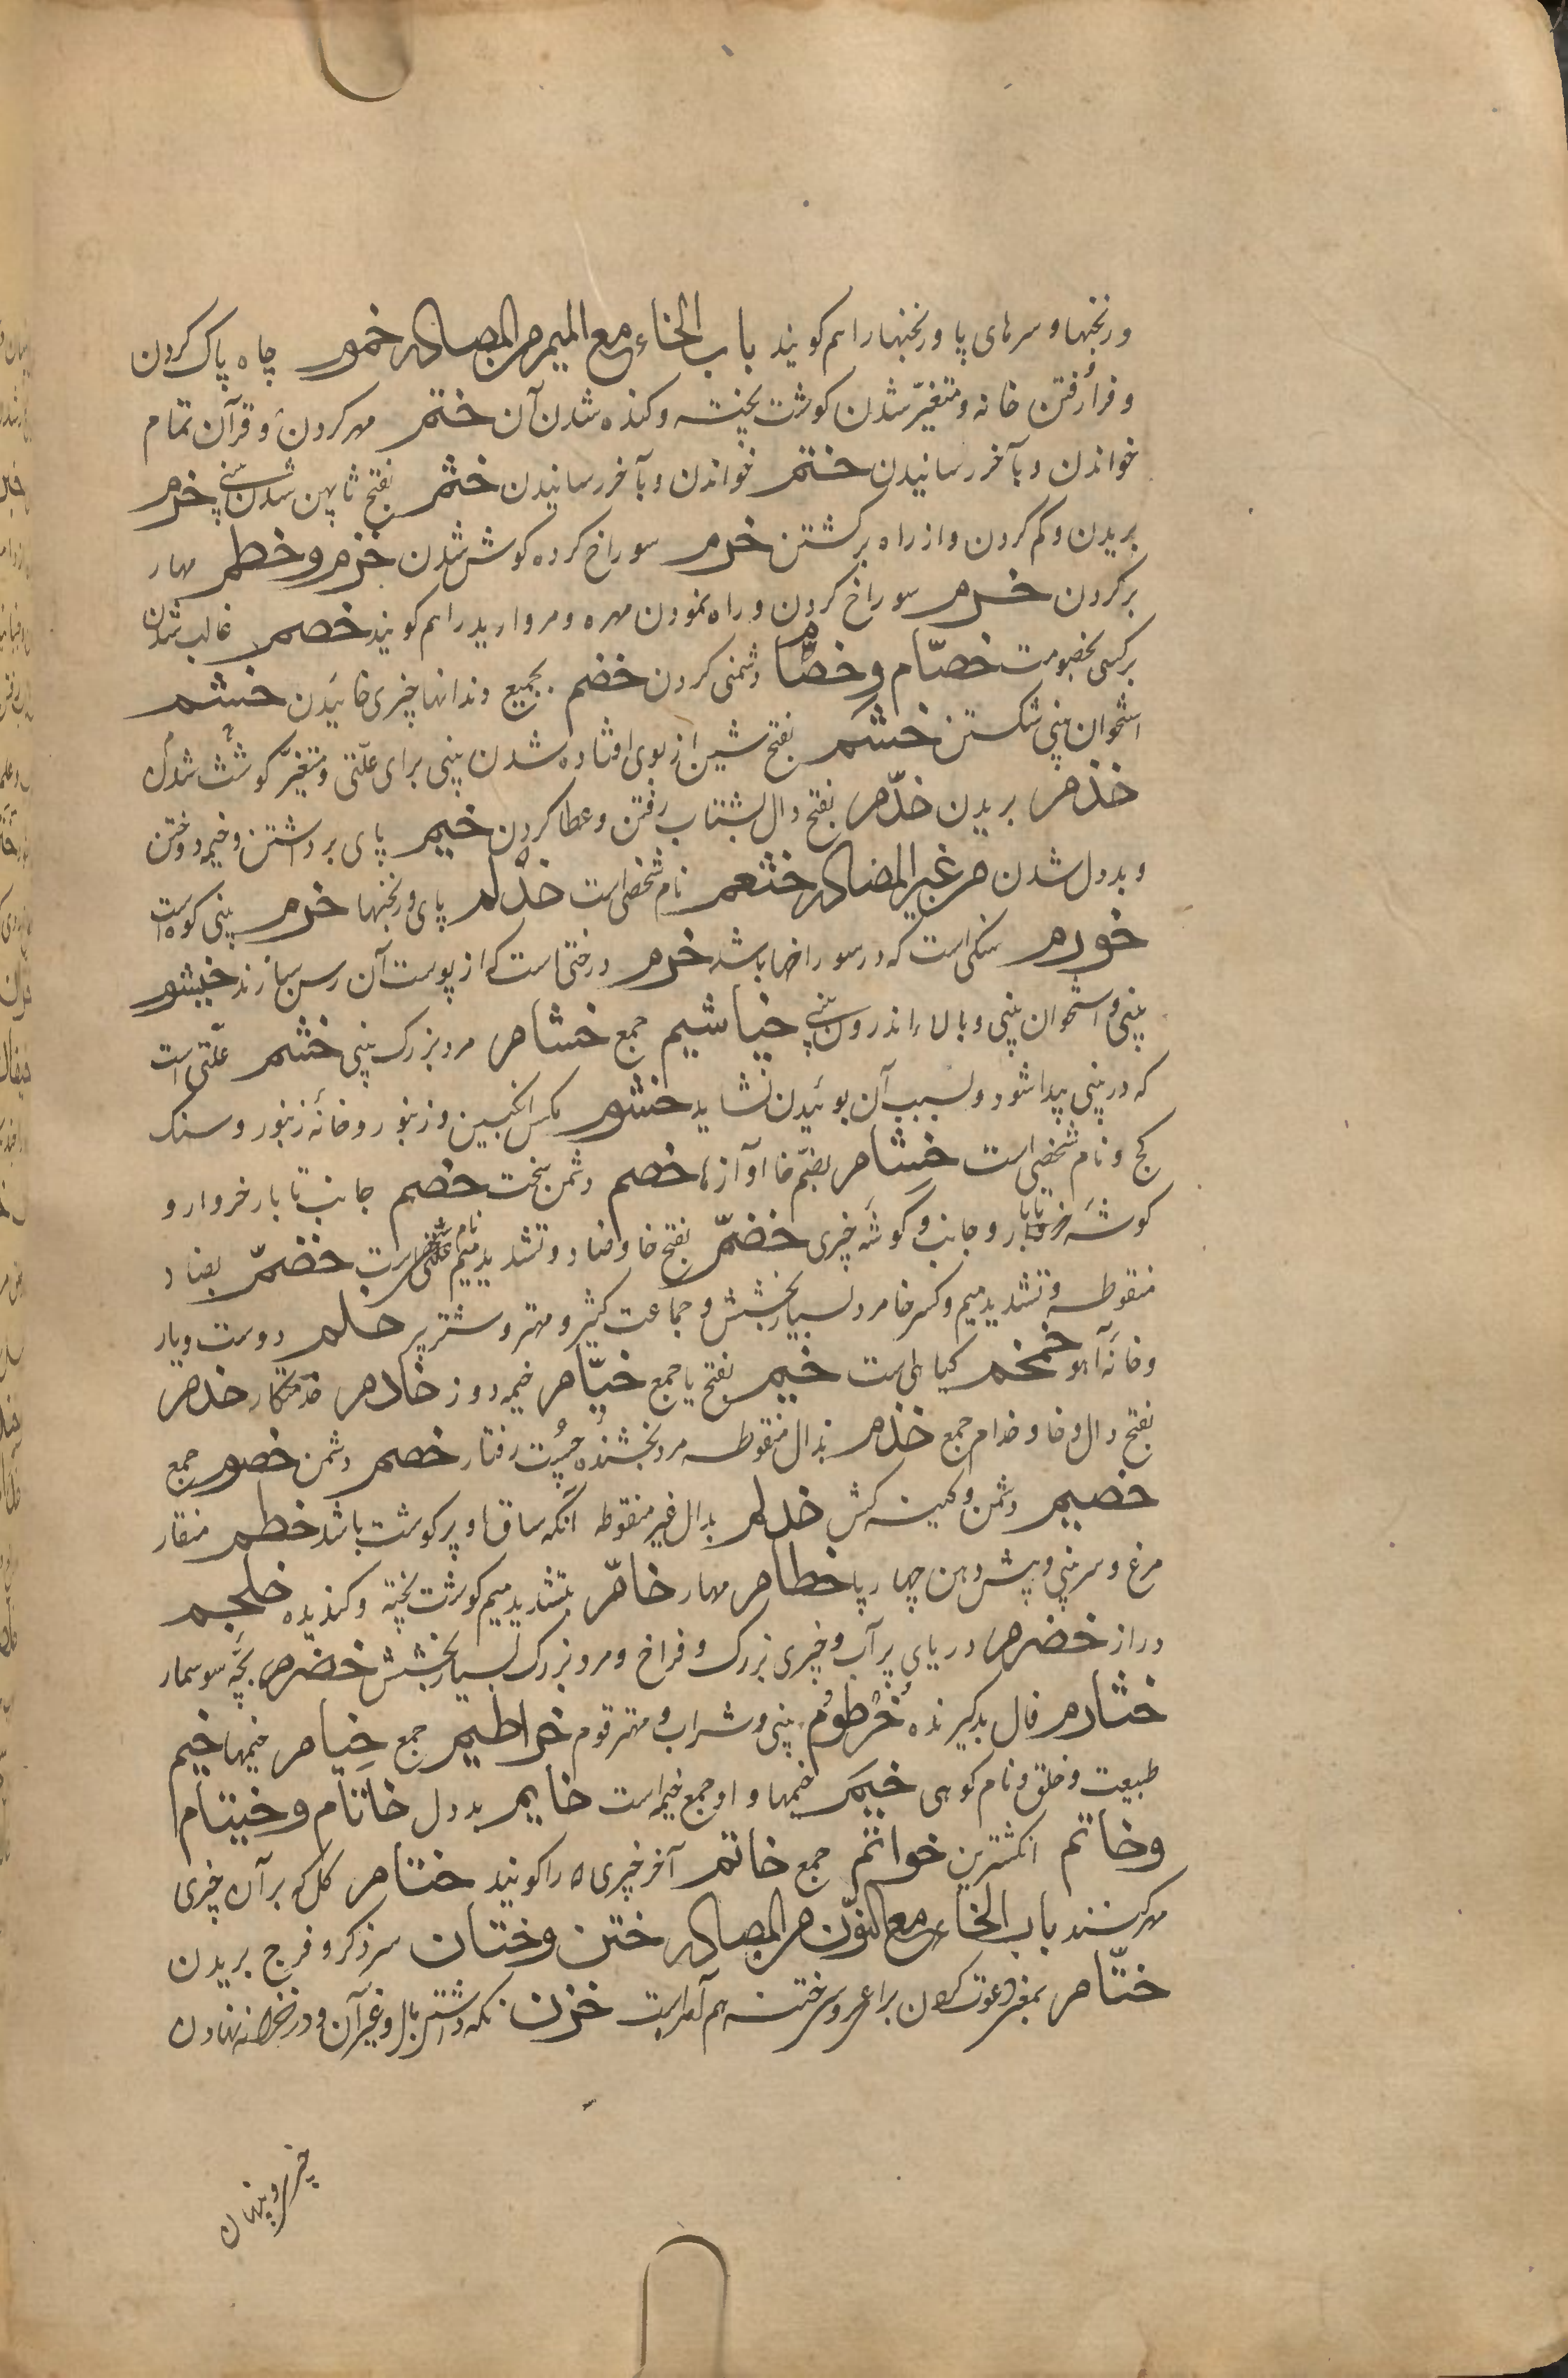 ورنجنها و سرهای پا و رنجنها را هم کویند باب الخاء مع المیم من المصادر خموم چاه پاک کردن
و فرا رفتن خانه و متغیّر شدن کوشت پخته و کنده شدن آن ختم مهر کردن و قرآن تمام
خواندن و بآخر رسانیدن ختم خواندن و بآخر رسانیدن خثم بفتح ثا پهن شدن بینی خرم
بریدن و کم کردن و از راه برکشتن خرم سوراخ کرده کوش شدن خزم و خطم مهار
برکردن خزم سوراخ کردن و راه نمودن مهره و مروارید را هم کویند خصم غالب شدن
برکسی بخصومت خصّام و خصّاما دشمنی کردن خضم بجمیع دندانها چیزی خائیدن خشم
استخوان بینی شکستن خشم بفتح شین از بوی افتاده شدن بینی برای علّتی و متغیّر کوشت شدن
خذم بریدن خذّم بفتح دال بشتاب رفتن و عطا کردن خیم پای برداشتن و خیمه دوختن
و بددل شدن من غیر المصادر خثعم نام شخصی است خذلم پای ورنجنها خرم بینی کوه است
خورم سنکی است که در سوراخها باشد خزم درختی است که از پوست آن رسن سازند خیشوم
بینی و استخوان بینی و بالاء اندرون بینی خیاشیم جمع خشام مرد بزرک بینی خشم علّتی است
که در بینی پیدا شود و بسبب آن بوئیدن نشاید خشرم مکس انکبین و زنبور و خانهٔ زنبور و سنک
کج و نام شخصی است خشام بضمّ خا آوازها خصم دشمن سخت خصم جانب تا بار خروار و
کوشهٔ تا بار و جانب و کوشهٔ چیزی خضمّ بفتح خا و ضاد و تشدید میم نام شخصی است خضمّ بضاد
منقوطه و تشدید میم و کسر خا مرد بسیار بخشش و جماعت کثیر و مهتر و شتر پر خلم دوست و یار
و خانهٔ آهو خمخم کیاهی است خیم بفتح یا جمع خیّام خیمه دوز خادم خدمتکار خدم
بفتح دال و خا و خدام جمع خذم بذال منقوطه مرد بخشنده چُست رفتار خصم دشمن خصوم جمع
خصیم دشمن و کینه کش خدلم بدال غیر منقوطه آنکه ساق او پر کوشت باشد خطم منقار
مرغ و سر بینی و پیش دهن چهار پا خطام مهار خامّ بتشدید میم کوشت پخته و کندیده خلجم
دراز خضرم دریای پر آب و چیزی بزرک و فراخ و مرد بزرک بسیار بخشش خضرم بچّه سوسمار
خثارم فال بد کیرنده خُرطوُم بینی و شراب و مهتر قوم خراطیم جمع خیام خیمها خیم
طبیعت و خلق و نام کوهی خیم خیمها و او جمع خیمه است خایم بددل خاتام و خیتام
و خاتم انکشترین خواتم جمع خاتم آخر چیزی را کویند ختام کل که بر آن چیزی
مهر کنند باب الخاء مع النّون من المصادر ختن و ختان سر ذکر و فرج بریدن
ختّام بمعنی دعوت کردن برا عروس ختنه هم آمده است خزن نکه داشتن مال و غیر آن و در خزانه نهادن
چیزی و پنهان